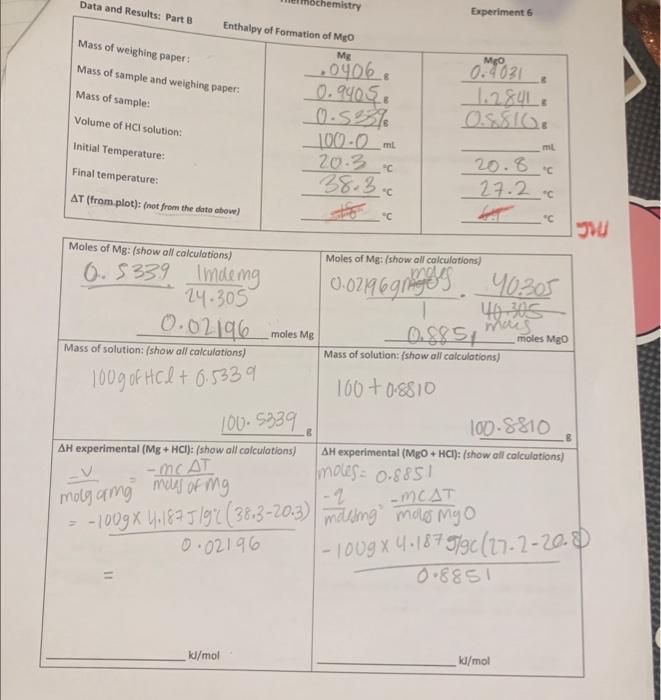 Data and Results: Part B
Thermochemistry
Experiment 6
Enthalpy of Formation of MgO
Mg
MgO
Mass of weighing paper: .0406 g 0.4031 g
Mass of sample and weighing paper: 0.9405 g 1.2841 g
Mass of sample: 0.5339 g 0.8810 g
Volume of HCl solution: 100.0 mL mL
Initial Temperature: 20.3 °C 20.8 °C
Final temperature: 38.3 °C 27.2 °C
ΔT (from plot): (not from the data above) 18 °C °C
Moles of Mg: (show all calculations)
0.5339 1mdemg
24.305
0.02196 moles Mg
Moles of Mg: (show all calculations)
0.02196 moles . 40.305
1 40.305
0.8851 moles MgO
Mass of solution: (show all calculations)
100g of HCl + 0.5339
100.5339 g
Mass of solution: (show all calculations)
100 + 0.8810
100.8810 g
ΔH experimental (Mg + HCl): (show all calculations)
= -mcΔT
moles of mg
= -100g x 4.187 J/g°C (38.3-20.3)
0.02196
=
kJ/mol
ΔH experimental (MgO + HCl): (show all calculations)
moles = 0.8851
-q = -mcΔT
moles MgO
-100g x 4.187 J/gc (27.2-20.8)
0.8851
kJ/mol